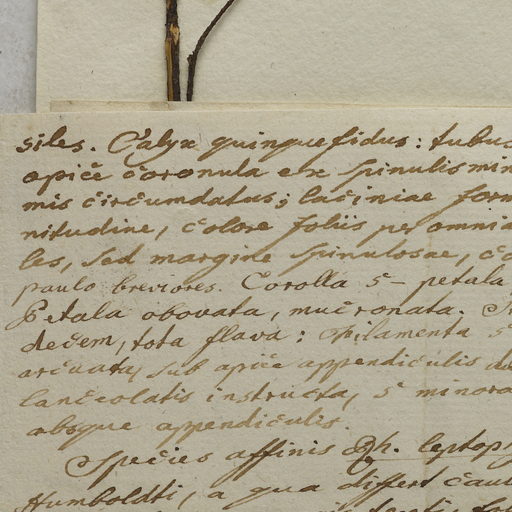 siles. Calyx quinquefidus: tubus
apice coronula ex spinulis min
mis circumdatus; laciniae form
nitudine, colore foliis per omnia
les, sed margine spinulosae, co
paulo breviores. Corolla 5-petala
Petala obovata, mucronata. St
decem, tota flava: Filamenta 5
arcuata, sub apice appendiculis
lanceolatis instructa, 5 minora
absque appendiculis.
Species affinis Rh. leptoph
Humboldti, a qua differt caul